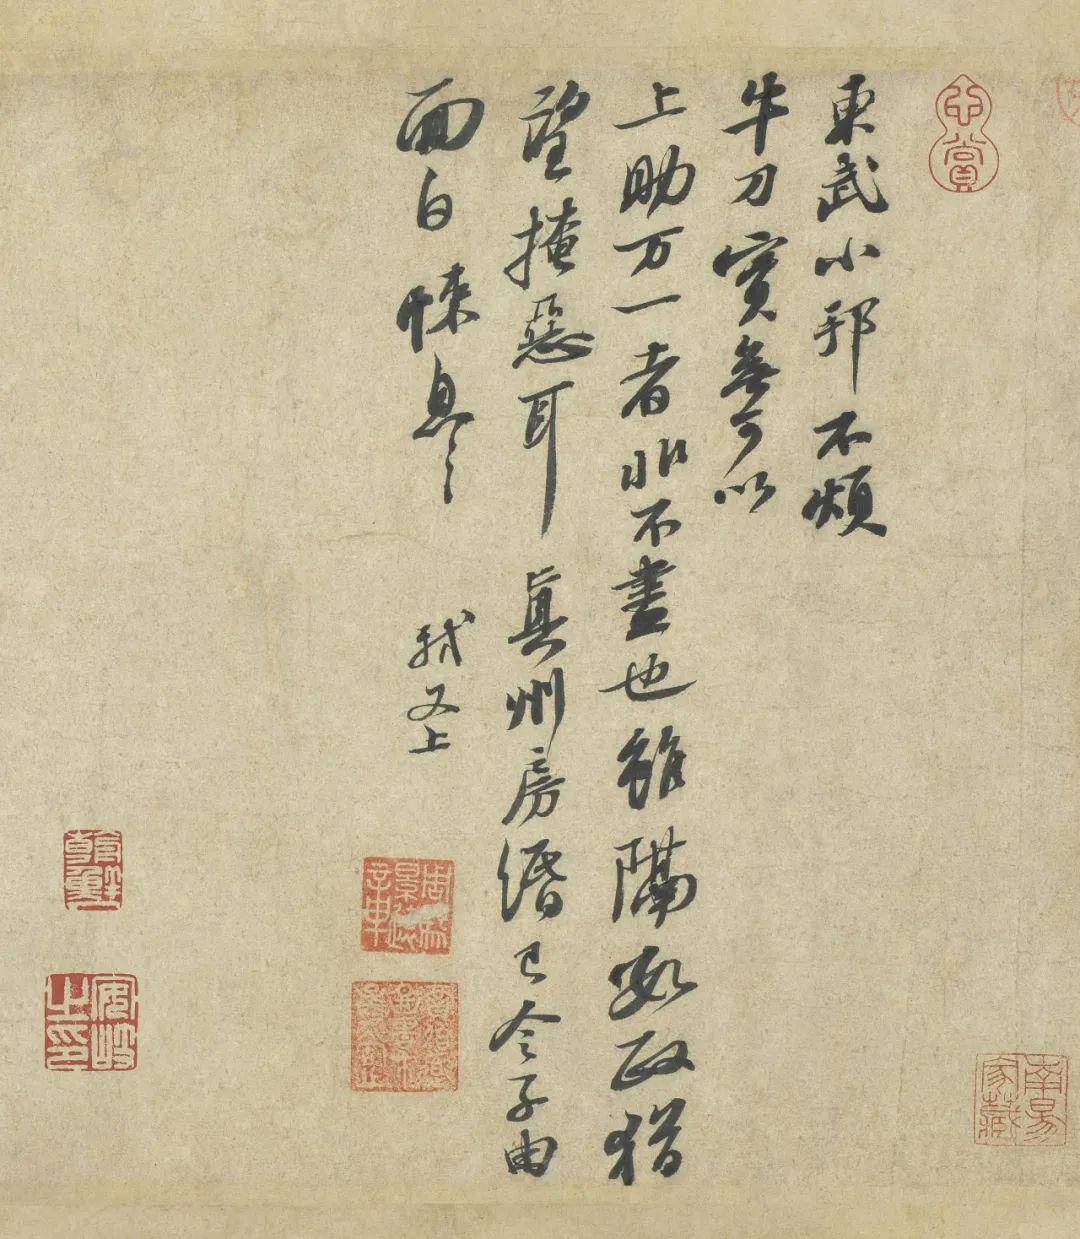 東武小邦不煩
牛刀實無可以
上助万一者非不盡也雖隔數政猶
望掩惡耳真州房緡已令子由
面白悚息々
軾又上